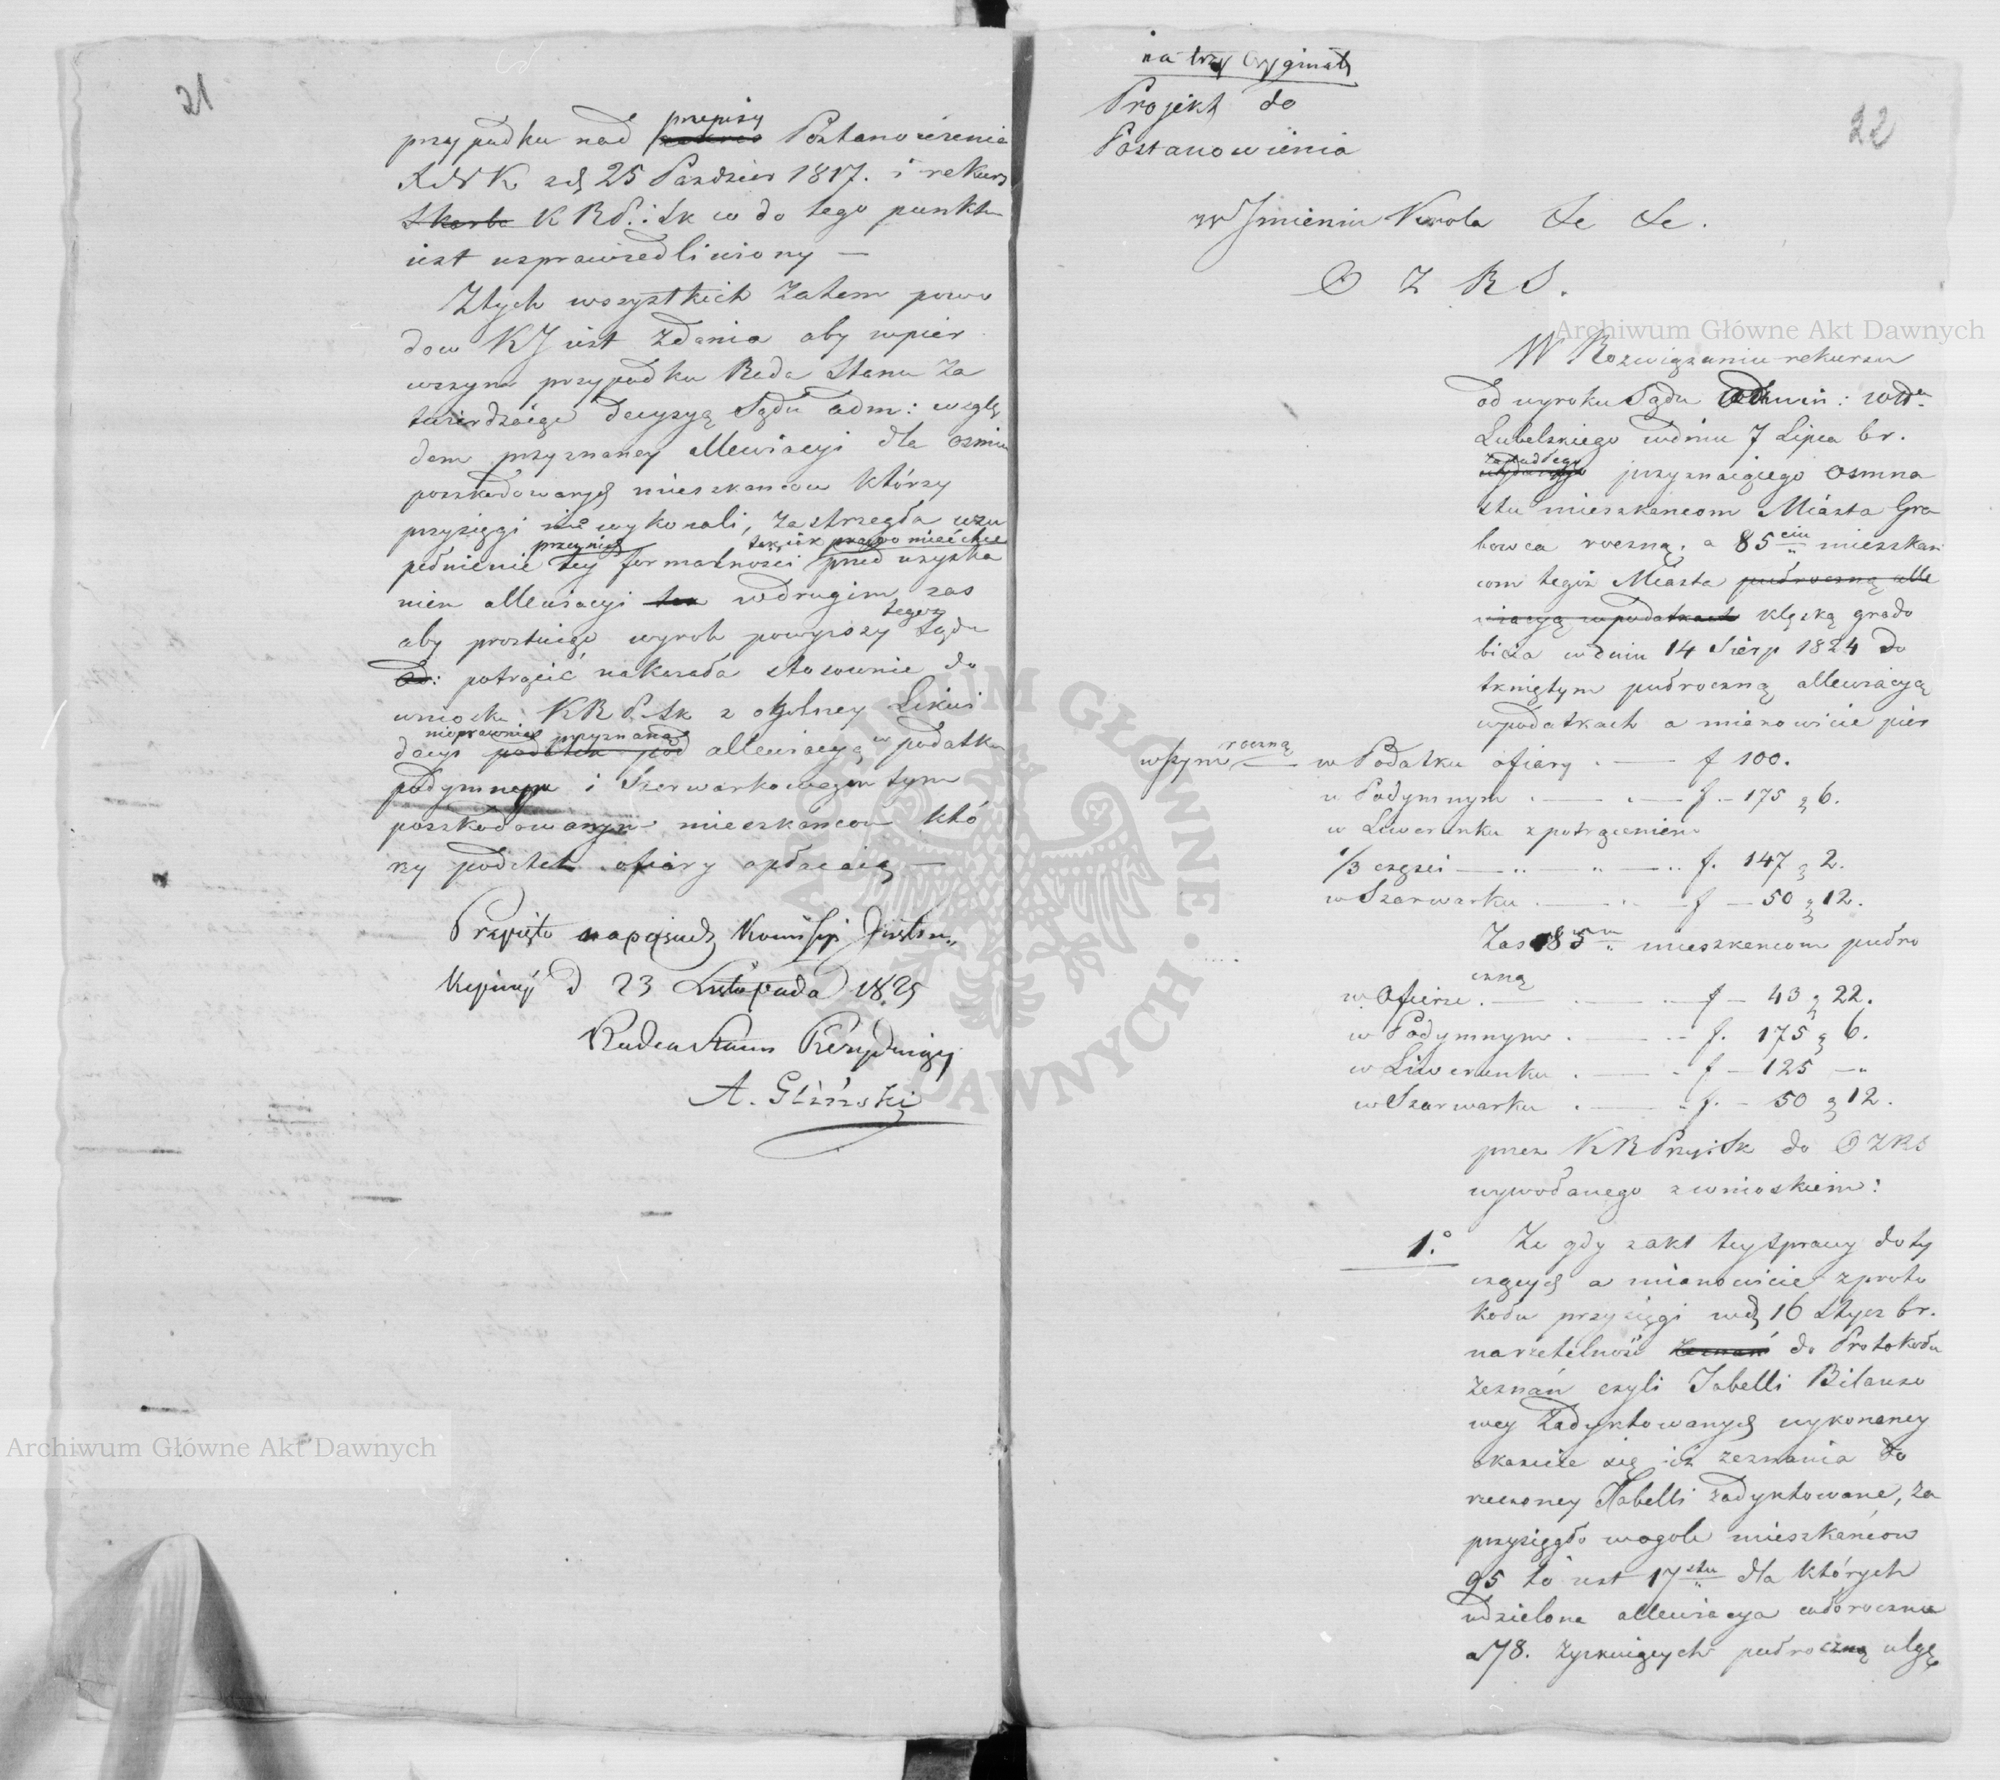 21
przypadku nad przepisy Postanowienia
zd 25 Pazdzier 1817. i rekurs
Skarbu K R P. i Sk w do tego punktu
iest usprawiedliwiony —
Ztych wszystkich Zatem powo
dow KJ iest Zdania aby wpier
wszym przypadku Rada Stanu Za
twierdzaiąc decyzyą Sądu adm: wzglę
dem przyznaney allewiacyi dla osmiu
poszkodowanych mieszkancow którzy
przysięgi nie wykonali, Zastrzegła uzu
pełnienie tey formalności przed uzyska
niem allewiacyi wdrugim zas
aby prostuiąc wyrok powyższy tegoż Sądu
potrącić nakazała stosownie do
wniosku KR P. Sk z ogólney Likwi
dacyi nieprawnie przyznaną allewiacyą w podatku
podymnym i Szarwarkowegom tym
poszkodowanym mieszkancom któ
rzy podatek ofiary opłacaią —
Przyięto na posiedz Komisyi Jnstru„
kcyiney d 23 Listopada 1825
Radca Stanu Prezyduiący
A. Gliński
na trzy Oryginały
Projekt do
Postanowienia
22
w Jmieniu Krola &c &c.
O Z R S.
Archiwum Główne Akt Dawnych
W Rozwiązaniu rekursu
od wyroku Sądu Admin: wdz
Lubelskiego wdniu 7 Lipca br.
zapadłego przyznaiącego osmna
stu mieszkancom Miasta Gra
bowca roczną, a 85ciu mieszkan
com tegoż Miasta pułroczną alle
wiacyą wpodatkach klęską grado
bicia wdniu 14 Sierp 1824 do
tkniętym pułroczną allewiacyą
wpodatkach a mianowicie pier
wszym roczną w Podatku ofiary . — f 100.
w Podymnym . — . — f. — 175 g 6.
w Liwerunku z potrąceniem
1/3 części — „ — „ — „ f. 147 g 2.
w Szarwarku . — „ — f — 50 g 12.
Zas 85ciu mieszkancom pułro
czną
w Ofierze . — . — „ f — 43 g 22.
w Podymnym . — „ f. 175 g 6.
w Liwerunku . — „ f — 125 — „
w Szarwarku . — „ f. — 50 g 12.
przez K R Przy i Sk do O Z R S
wywodanego z wnioskiem:
1.° Ze gdy z akt tey Sprawy doty
czących a mianowicie z proto
kołu przysięgi wd 16 Stycz br.
na rzetelność Zeznań do Protokołu
Zeznań czyli Tabelli Bilanso
wey Zadyktowanych wykonaney
okazuie się iz zeznania do
rzeczoney Tabelli zadyktowane, Za
przysięgło wogole mieszkańcow
95 to iest 17stu dla których
udzielona allewiacya całoroczna
a 78. Zyskuiących pułroczną ulgę
ARCHIWUM GŁÓWNE • AKT DAWNYCH •
Archiwum Główne Akt Dawnych